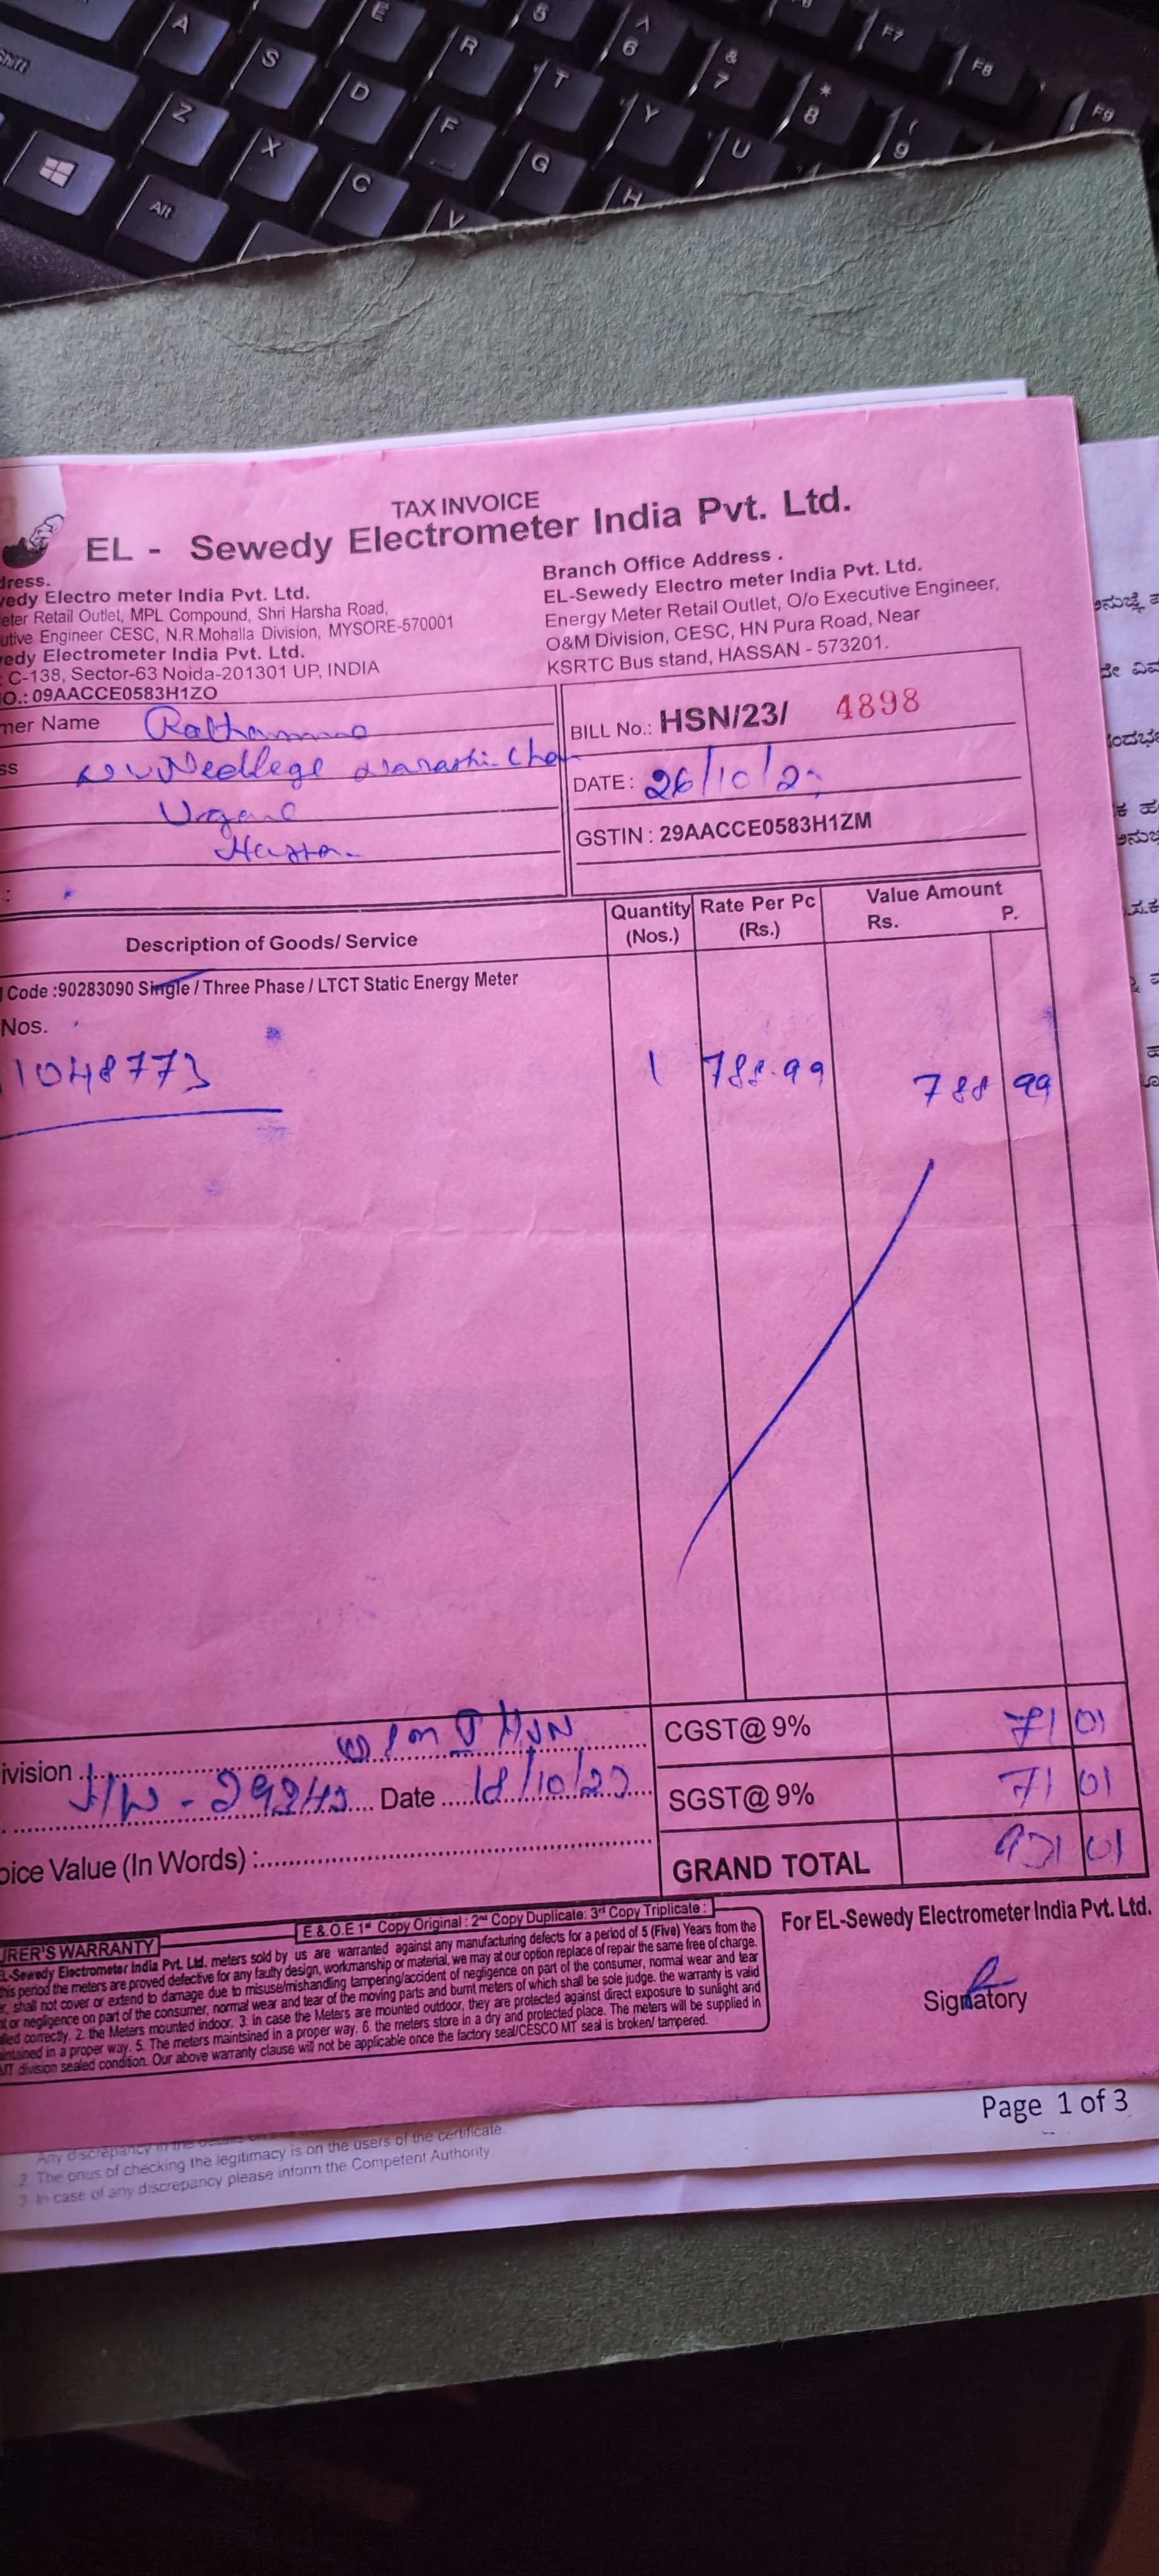 TAX INVOICE
EL - Sewedy Electrometer India Pvt. Ltd.
dress.
vedy Electro meter India Pvt. Ltd.
eter Retail Outlet, MPL Compound, Shri Harsha Road,
utive Engineer CESC, N.R.Mohalla Division, MYSORE-570001
edy Electrometer India Pvt. Ltd.
C-138, Sector-63 Noida-201301 UP, INDIA
O.: 09AACCE0583H1ZO
Branch Office Address .
EL-Sewedy Electro meter India Pvt. Ltd.
Energy Meter Retail Outlet, O/o Executive Engineer,
O&M Division, CESC, HN Pura Road, Near
KSRTC Bus stand, HASSAN - 573201.
mer Name
ss
BILL No.: HSN/23/ 4898
DATE : 26/10/2
GSTIN : 29AACCE0583H1ZM
Description of Goods/ Service
Quantity (Nos.)
Rate Per Pc (Rs.)
Value Amount
Rs. P.
Code :90283090 Single / Three Phase / LTCT Static Energy Meter
Nos.
1048773 1 788.99 788 99
ivision
Date 18/10/23
oice Value (In Words) :
CGST@ 9% 71 01
SGST@ 9% 71 01
GRAND TOTAL 931 01
E & O.E 1st Copy Original : 2nd Copy Duplicate: 3rd Copy Triplicate :
URER'S WARRANTY
EL-Sewedy Electrometer India Pvt. Ltd. meters sold by us are warranted against any manufacturing defects for a period of 5 (Five) Years from the
this period the meters are proved defective for any faulty design, workmanship or material, we may at our option replace of repair the same free of charge.
r, shall not cover or extend to damage due to misuse/mishandling tampering/accident of negligence on part of the consumer, normal wear and tear
t or negligence on part of the consumer, normal wear and tear of the moving parts and burnt meters of which shall be sole judge. the warranty is valid
lled correctly. 2. the Meters mounted indoor. 3. in case the Meters are mounted outdoor, they are protected against direct exposure to sunlight and
intained in a proper way. 5. The meters maintsined in a proper way. 6. the meters store in a dry and protected place. The meters will be supplied in
MT division sealed condition. Our above warranty clause will not be applicable once the factory seal/CESCO MT seal is broken/ tampered.
For EL-Sewedy Electrometer India Pvt. Ltd.
Signatory
Page 1 of 3
Any discrepancy in the
2. The onus of checking the legitimacy is on the users of the certificate.
In case of any discrepancy please inform the Competent Authority